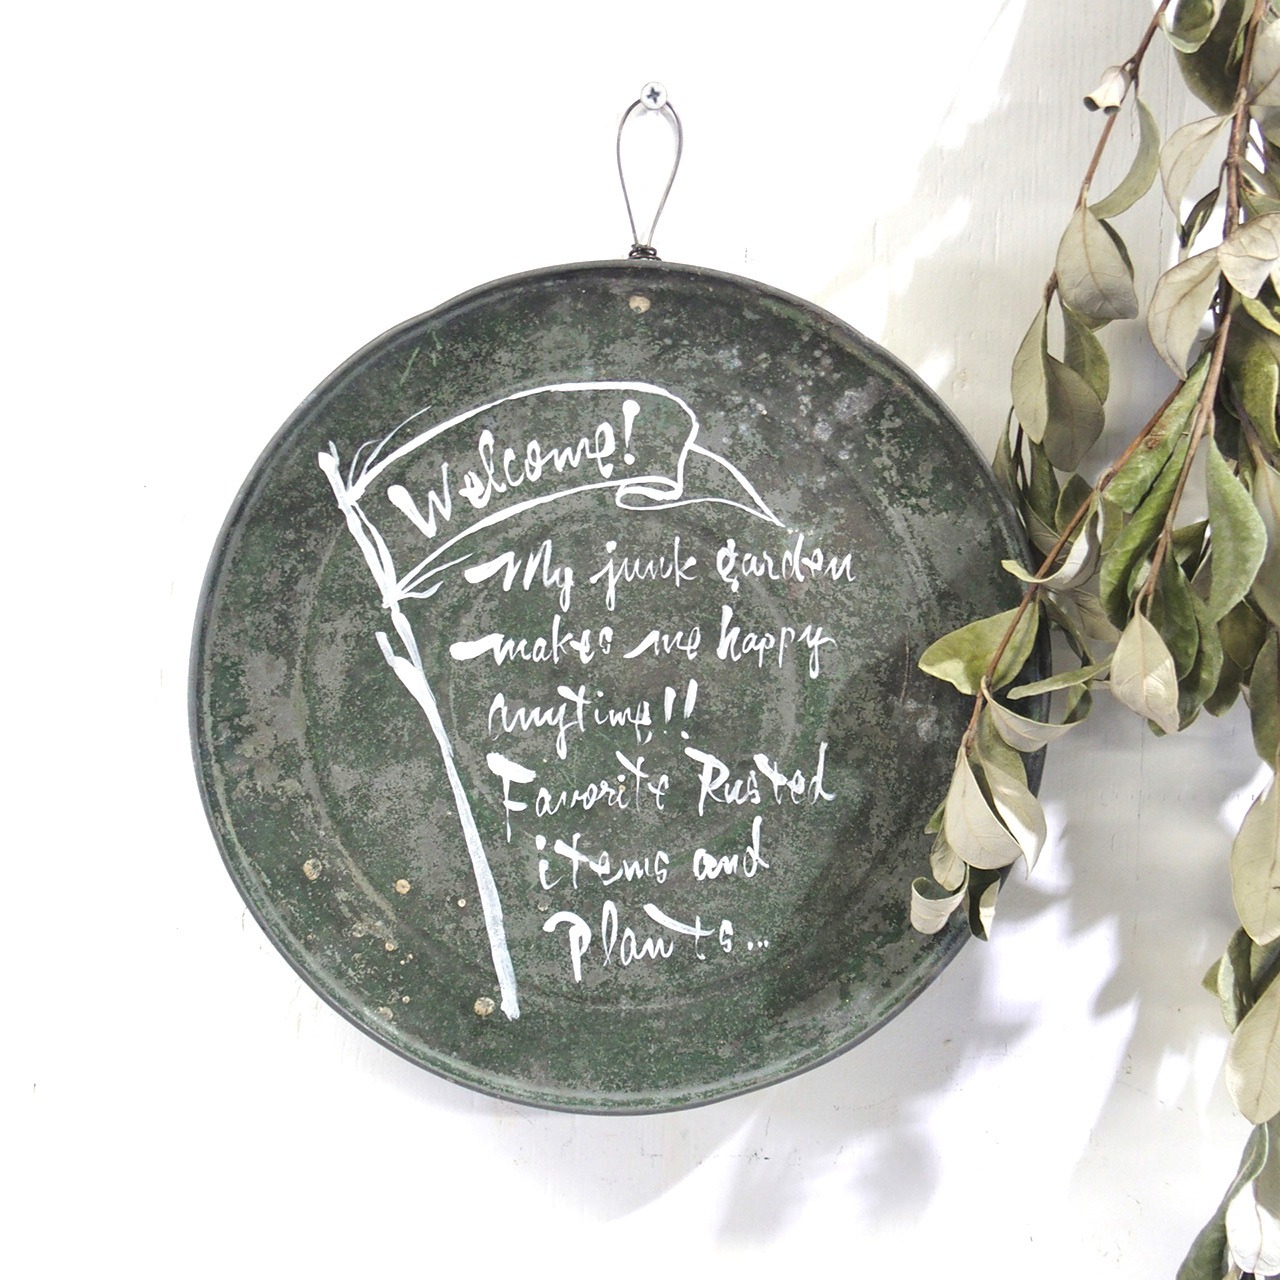 Welcome!
My junk garden
makes me happy
anytime!!
Favorite Rusted
items and
Plants...